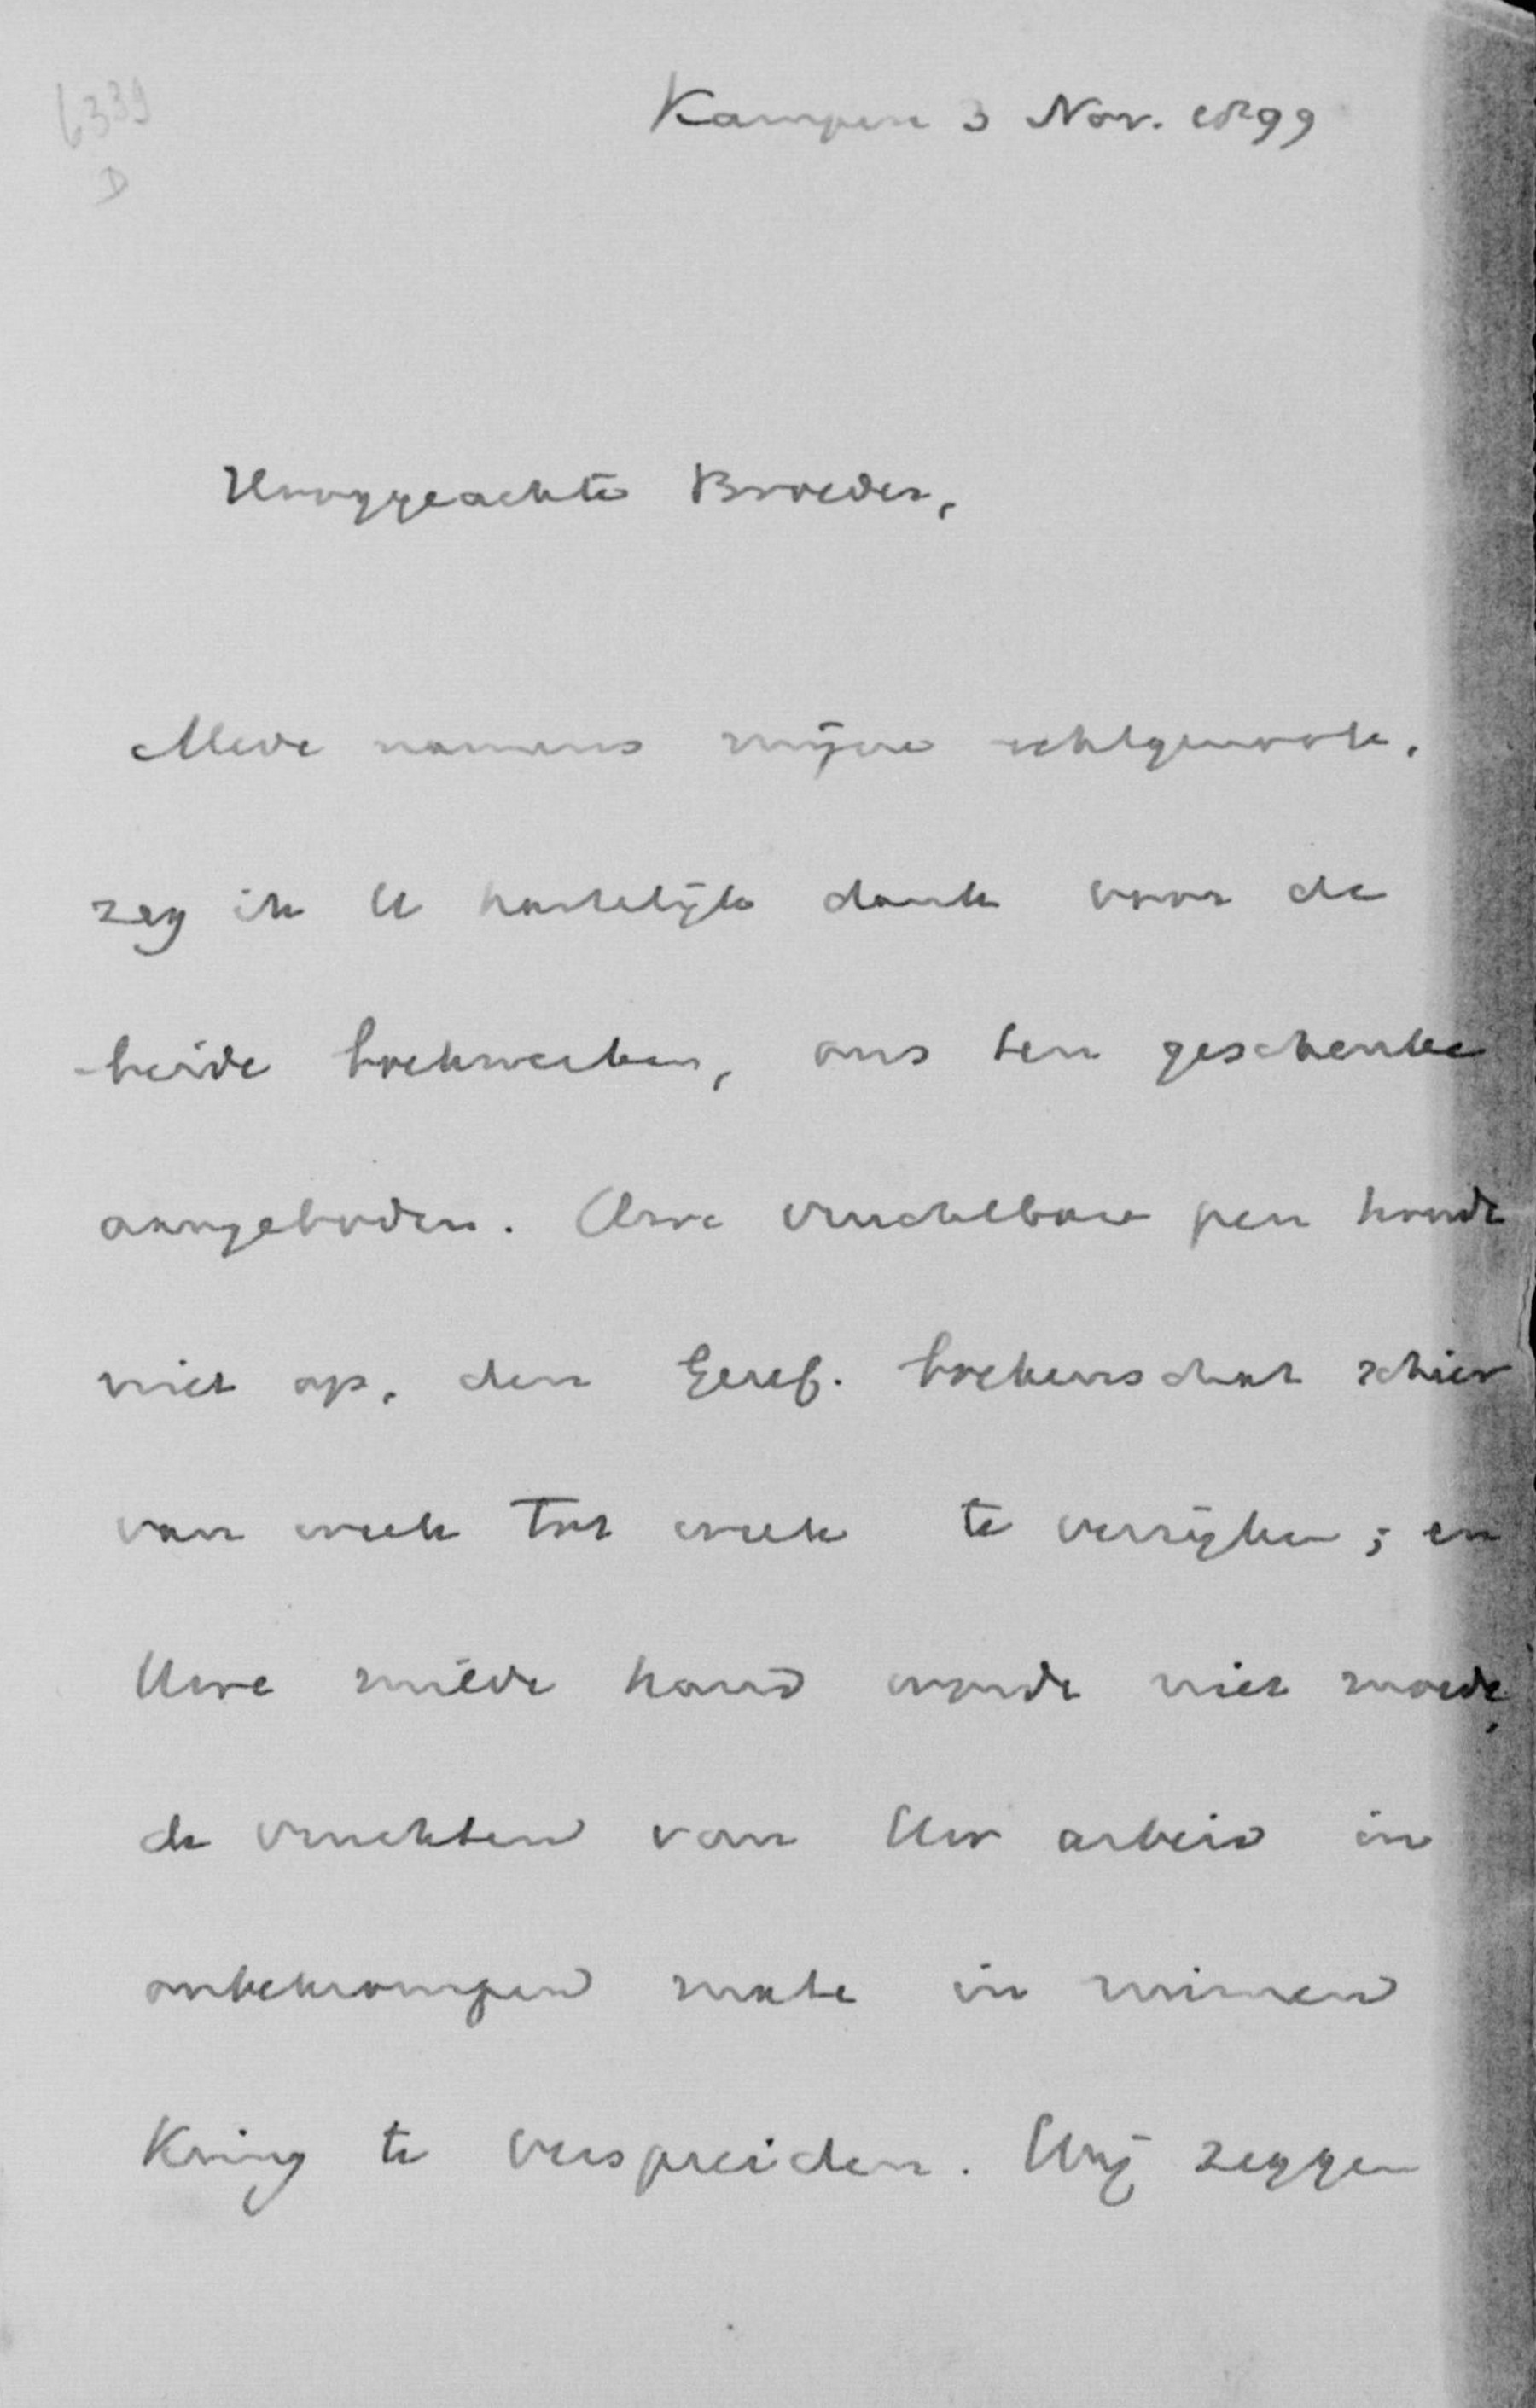 6339
D
Kampen 3 Nov. 1899
Hooggeachte Broeder,
Mede namens mijne echtgenoote,
zeg ik U hartelijk dank voor de
beide boekwerken, ons ten geschenke
aangeboden. Uwe vruchtbare pen houdt
niet op, den Geref. boekenschat schier
van week tot week te verrijken; en
Uwe milde hand wordt niet moede,
de vruchten van Uw arbeid in
onbekrompen mate in ruimen
Kring te verspreiden. Wij zeggen